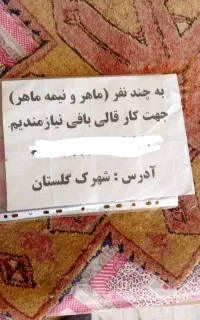 به چند نفر (ماهر و نیمه ماهر)
جهت کار قالی بافی نیازمندیم.
آدرس : شهرک گلستان